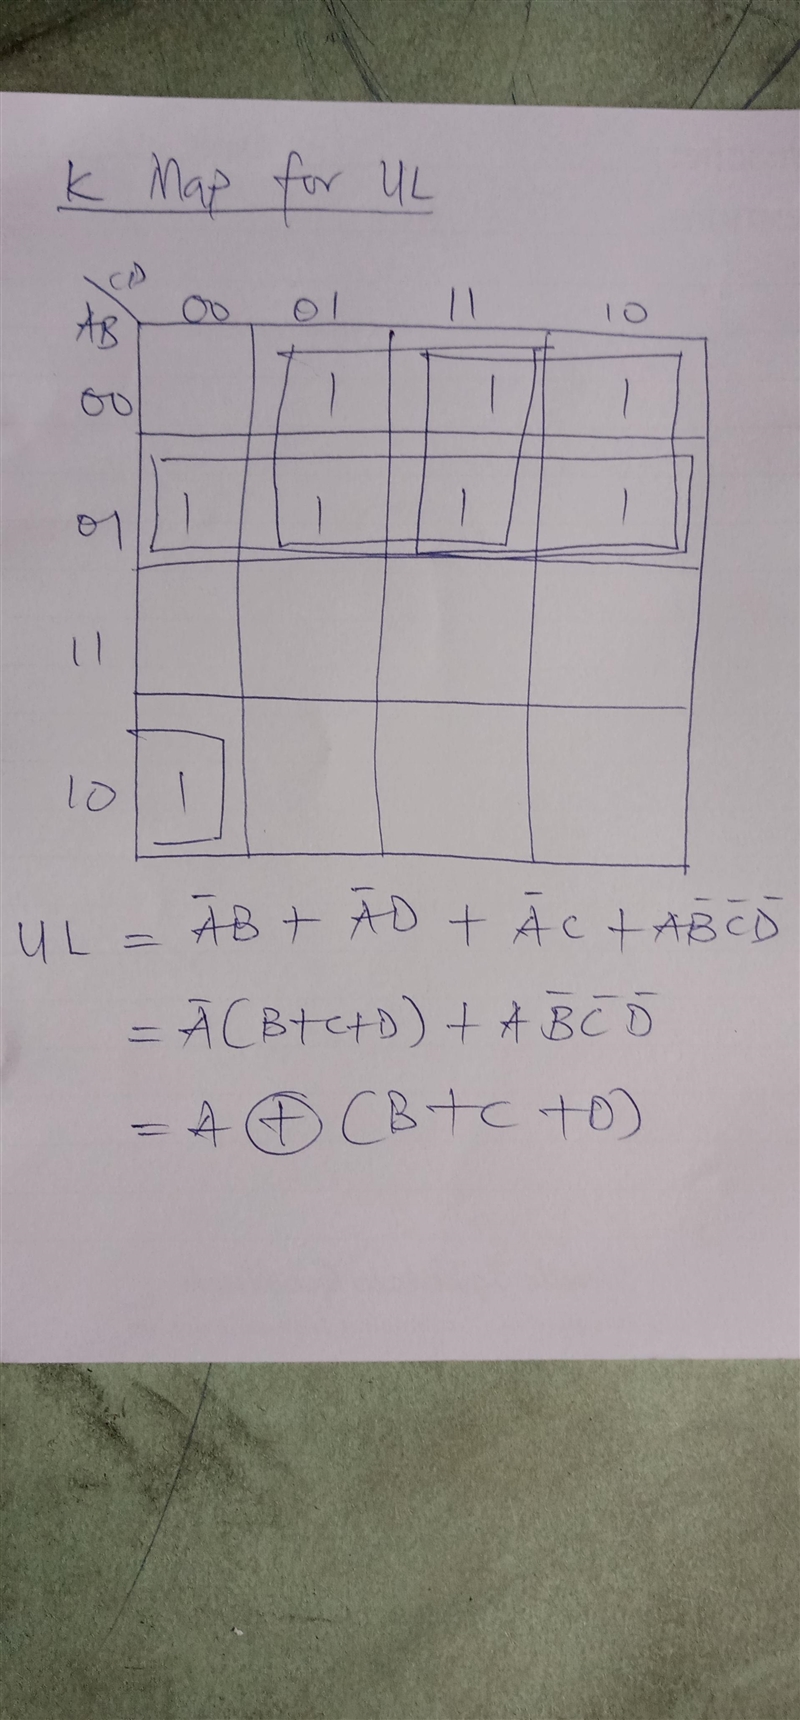 K Map for UL
CD
AB 00 01 11 10
00 1 1 1
01 1 1 1 1
11
10 1
UL = A̅B + A̅D + A̅C + AB̅C̅D̅
= A̅(B+C+D) + AB̅C̅D̅
= A ⊕ (B+C+D)